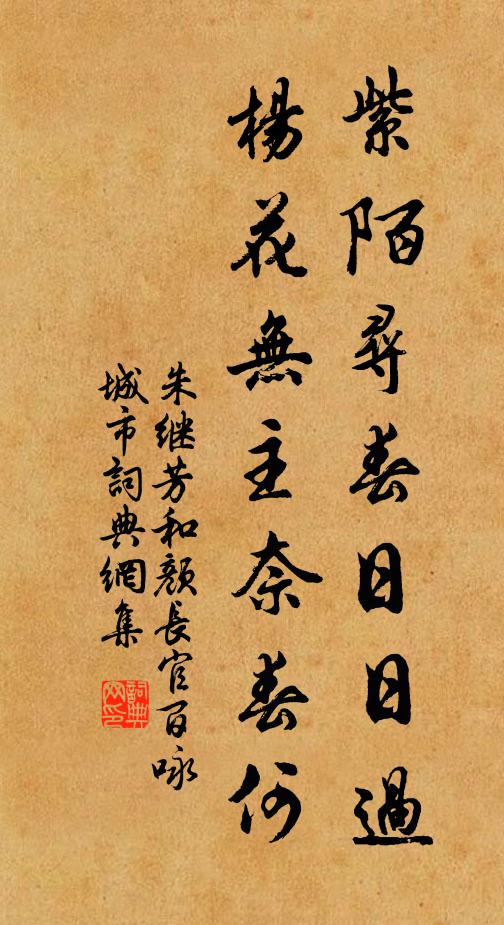 紫陌尋春日日過
楊花無主奈春何
朱继芳和顏長官百咏
城市詞典網集
詞典网印